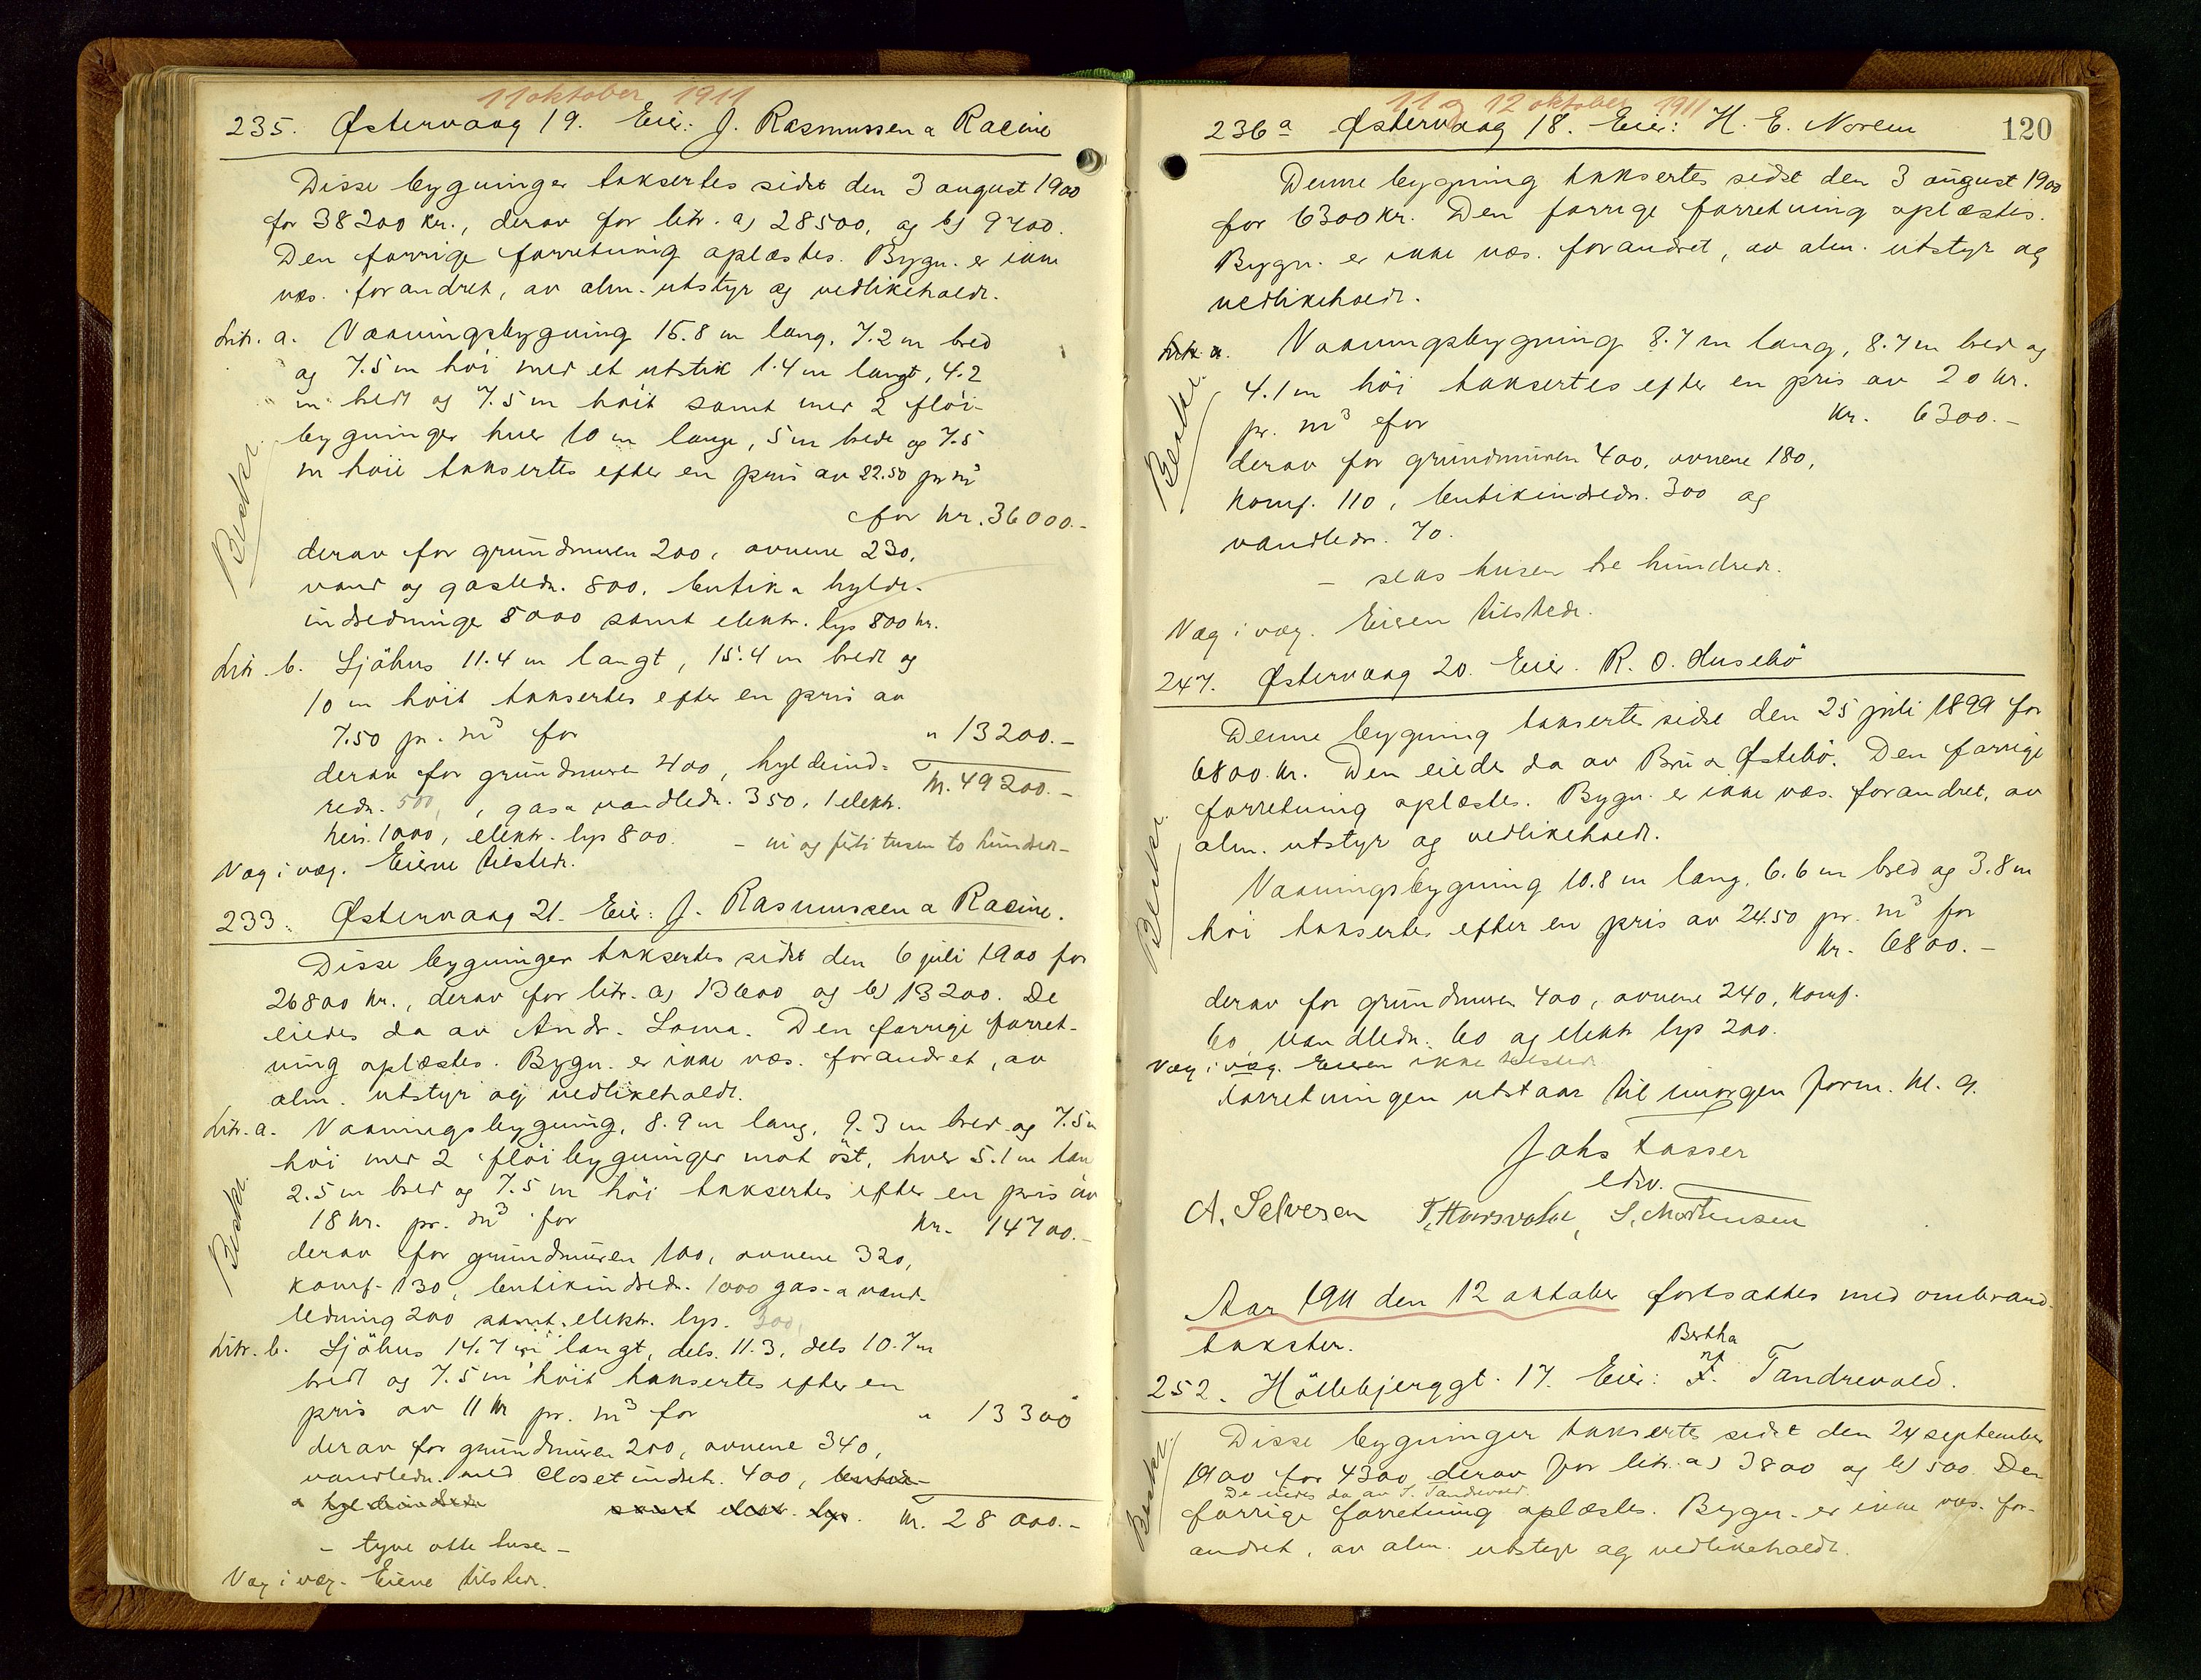 11 oktober 1911
235. Østervaag 19. Eier: J. Rasmussen & Racine
Disse bygninger taksertes sidst den 3 august 1900
for 38200 kr., derav for litr. a) 28500, og b) 9700.
Den forrige forretning oplæstes. Bygn. er ikke
væs. forandret, av alm. utstyr og vedlikeholdt.
Litr. a. Vaaningsbygning 15.8 m lang, 7.2 m bred
og 7.5 m höi med et utstik 1.4 m langt, 4.2
m bredt og 7.5 m höit samt med 2 flöi-
bygninger hver 10 m lange, 5 m brede og 7.5
m höie taksertes efter en pris av 22.50 pr m³
for kr. 36000.-
Beskr.
derav for grundmuren 200, ovnene 230,
vand og gasledn. 800, butik & hylde-
indredninger 8000 samt elektr. lys 800 kr.
Litr. b. Sjöhus 11.4 m langt, 15.4 m bredt og
10 m höit taksertes efter en pris av
7.50 pr. m³ for " 13200.-
derav for grundmuren 400, hyldeind- kr. 49200.-
redn. 500, , gas & vandledn. 350, 1 elektr.
heis 1000, elektr. lys 800. - ni og firti tusen to hundred -
Væg i væg. Eierne tilstede.
233. Østervaag 21. Eier: J. Rasmussen & Racine.
Disse bygninger taksertes sidst den 6 juli 1900 for
26800 kr., derav for litr. a) 13600 og b) 13200. De
eiedes da av Andr. Loma. Den forrige forret-
ning oplæstes. Bygn. er ikke væs. forandret, av
alm. utstyr og vedlikeholdt.
Litr. a. Vaaningsbygning, 8.9 m lang, 9.3 m bred og 7.5 m
höi med 2 flöibygninger mot öst, hver 5.1 m lan
2.5 m bred og 7.5 m höi taksertes efter en pris av
18 kr. pr. m³ for kr. 14700.-
Beskr.
derav for grundmuren 100, ovnene 320,
komf. 130, butikindredn. 1000 gas- & vand-
ledning 200 samt elektr. lys. 300,
Litr. b. Sjöhus 14.7 m langt, dels 11.3, dels 10.7 m
bredt og 7.5 m höit taksertes efter en
pris av 11 kr pr. m³ for " 13300
derav for grundmuren 200, ovnene 340,
vandledn. med Closetindretn. 400, butik-
& hyldeindredn samt elektr. lys. kr. 28000.-
- tyve otte tusen -
Væg i væg. Eierne tilstede.
11 og 12 oktober 1911
236 a Østervaag 18. Eier: H. E. Norem 120
Denne bygning taksertes sidst den 3 august 1900
for 6300 kr. Den forrige forretning oplæstes.
Bygn. er ikke væs. forandret, av alm. utstyr og
vedlikeholdt.
Litr. a. Vaaningsbygning 8.7 m lang, 8.7 m bred og
4.1 m höi taksertes efter en pris av 20 kr.
pr. m³ for kr. 6300.-
Beskr.
derav for grundmuren 400, ovnene 180,
komf. 110, butikindredn. 300 og
vandledn. 70.
- seks tusen tre hundrede.
Væg i væg. Eieren tilstede.
247. Østervaag 20. Eier. R. O. Husebö
Denne bygning taksertes sidst den 25 juli 1899 for
6800 kr. Den eiedes da av Bru & Østebö. Den forrige
forretning oplæstes. Bygn. er ikke væs. forandret, av
alm. utstyr og vedlikeholdt.
Beskr.
Vaaningsbygning 10.8 m lang, 6.6 m bred og 3.8 m
höi taksertes efter en pris av 24.50 pr. m³ for
kr. 6800.-
derav for grundmuren 400, ovnene 240, komf.
60, vandledn. 60 og elektr lys 200.
Væg i væg. Eieren ikke tilstede
Forretningen utstaar til imorgen form. kl. 9.
Johs Tasser
edsv.
A. Salvesen T. Thorsvotn, S. Mortensen
Aar 1911 den 12 oktober fortsattes med ombrand-
takster.
Bertha
252. Höllebjerggt. 17. Eier: F. Tandrevold.
Disse bygninger taksertes sidst den 24 september
1900 for 4300, derav for litr. a) 3800 og b) 500. Den
De eiedes da av S. Tandrevold.
forrige forretning oplæstes. Bygn. er ikke væs. for-
andret, av alm. utstyr og vedlikeholdt.
Beskr.